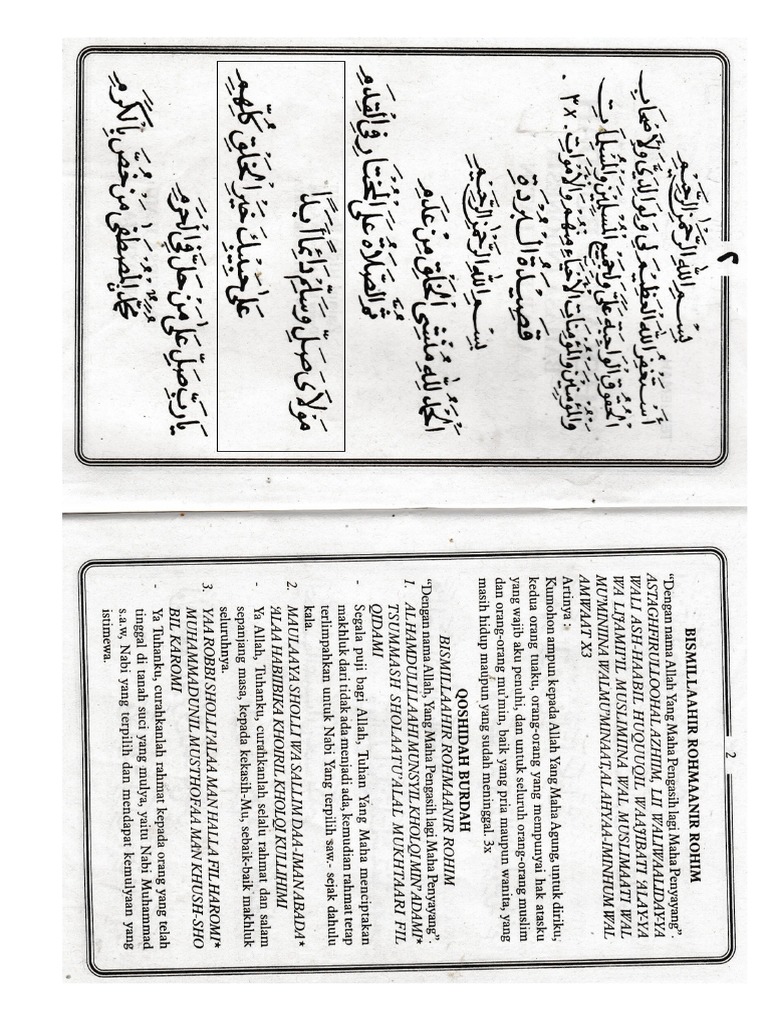 ٢
بِسْمِ اللهِ الرَّحْمٰنِ الرَّحِيْمِ
أَسْتَغْفِرُ اللهَ الْعَظِيْمَ لِى وَلِوَالِدَىَّ وَلِأَصْحَابِ
الْحُقُوْقِ الْوَاجِبَةِ عَلَىَّ وَلِجَمِيْعِ الْمُسْلِمِيْنَ وَالْمُسْلِمَاتِ
وَالْمُؤْمِنِيْنَ وَالْمُؤْمِنَاتِ الْأَحْيَاءِ مِنْهُمْ وَالْأَمْوَاتِ . ٣x .
قَصِيْدَةُ الْبُرْدَةِ
بِسْمِ اللهِ الرَّحْمٰنِ الرَّحِيْمِ
اَلْحَمْدُ لِلّٰهِ مُنْشِى الْخَلْقِ مِنْ عَدَمِ
ثُمَّ الصَّلَاةُ عَلَى الْمُخْتَارِ فِى الْقِدَمِ
مَوْلَاىَ صَلِّ وَسَلِّمْ دَائِمًا أَبَدًا
عَلَى حَبِيْبِكَ خَيْرِ الْخَلْقِ كُلِّهِمِ
يَارَبِّ صَلِّ عَلَى مَنْ حَلَّ فِى الْحَرَمِ
مُحَمَّدٍ الْمُصْطَفَى مَنْ خُصَّ بِالْكَرَمِ
2
BISMILLAAHIR ROHMAANIR ROHIM
“Dengan nama Allah Yang Maha Pengasih lagi Maha Penyayang”.
ASTAGHFIRULLOOHAL AZHIIM, LII WALIWAALIDAY-YA
WALI ASH-HAABIL HUQUUQIL WAAJIBATI 'ALAY-YA
WA LIJAMITIL MUSLIMIINA WAL MUSLIMAATI WAL
MU'MINIINA WALMU'MINAAT, AL AHYAA-IMINHUM WAL
AMWAAT X3
Artinya :
Kumohon ampun kepada Allah Yang Maha Agung, untuk diriku,
kedua orang tuaku, orang-orang yang mempunyai hak atasku
yang wajib aku penuhi, dan untuk seluruh orang-orang muslim
dan orang-orang mu'min, baik yang pria maupun wanita, yang
masih hidup maupun yang sudah meninggal. 3x
QOSHIDAH BURDAH
BISMILLAAHIR ROHMAANIR ROHIM
“Dengan nama Allah, Yang Maha Pengasih lagi Maha Penyayang”.
1. ALHAMDULILLAAHI MUNSYIL KHOLQI MIN 'ADAMI*
TSUMMASH SHOLAATU'ALAL MUKHTAARI FIL
QIDAMI
- Segala puji bagi Allah, Tuhan Yang Maha menciptakan
makhluk dari tidak ada menjadi ada, kemudian rahmat tetap
terlimpahkan untuk Nabi Yang terpilih saw.- sejak dahulu
kala.
2. MAULAAYA SHOLLI WA SALLIM DAA-IMAN ABADA*
'ALAA HABIIBIKA KHOIRIL KHOLQI KULLIHIMI
- Ya Allah, Tuhanku, curahkanlah selalu rahmat dan salam
sepanjang masa, kepada kekasih-Mu, sebaik-baik makhluk
seluruhnya.
3. YAA ROBBI SHOLLI'ALAA MAN HALLA FIL HAROMI*
MUHAMMADUNIL MUSTHOFAA MAN KHUSH-SHO
BIL KAROMI
- Ya Tuhanku, curahkanlah rahmat kepada orang yang telah
tinggal di tanah suci yang mulya, yaitu Nabi Muhammad
s.a.w, Nabi yang terpilih dan mendapat kemulyaan yang
istimewa.